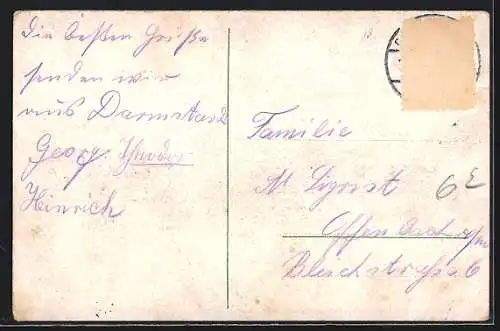 Die besten Grüße
senden wir
aus Darmstadt
Georg. Theodor
Heinrich
Familie
M.
Offenbach a/m
Bleichstrasse 6
6 E